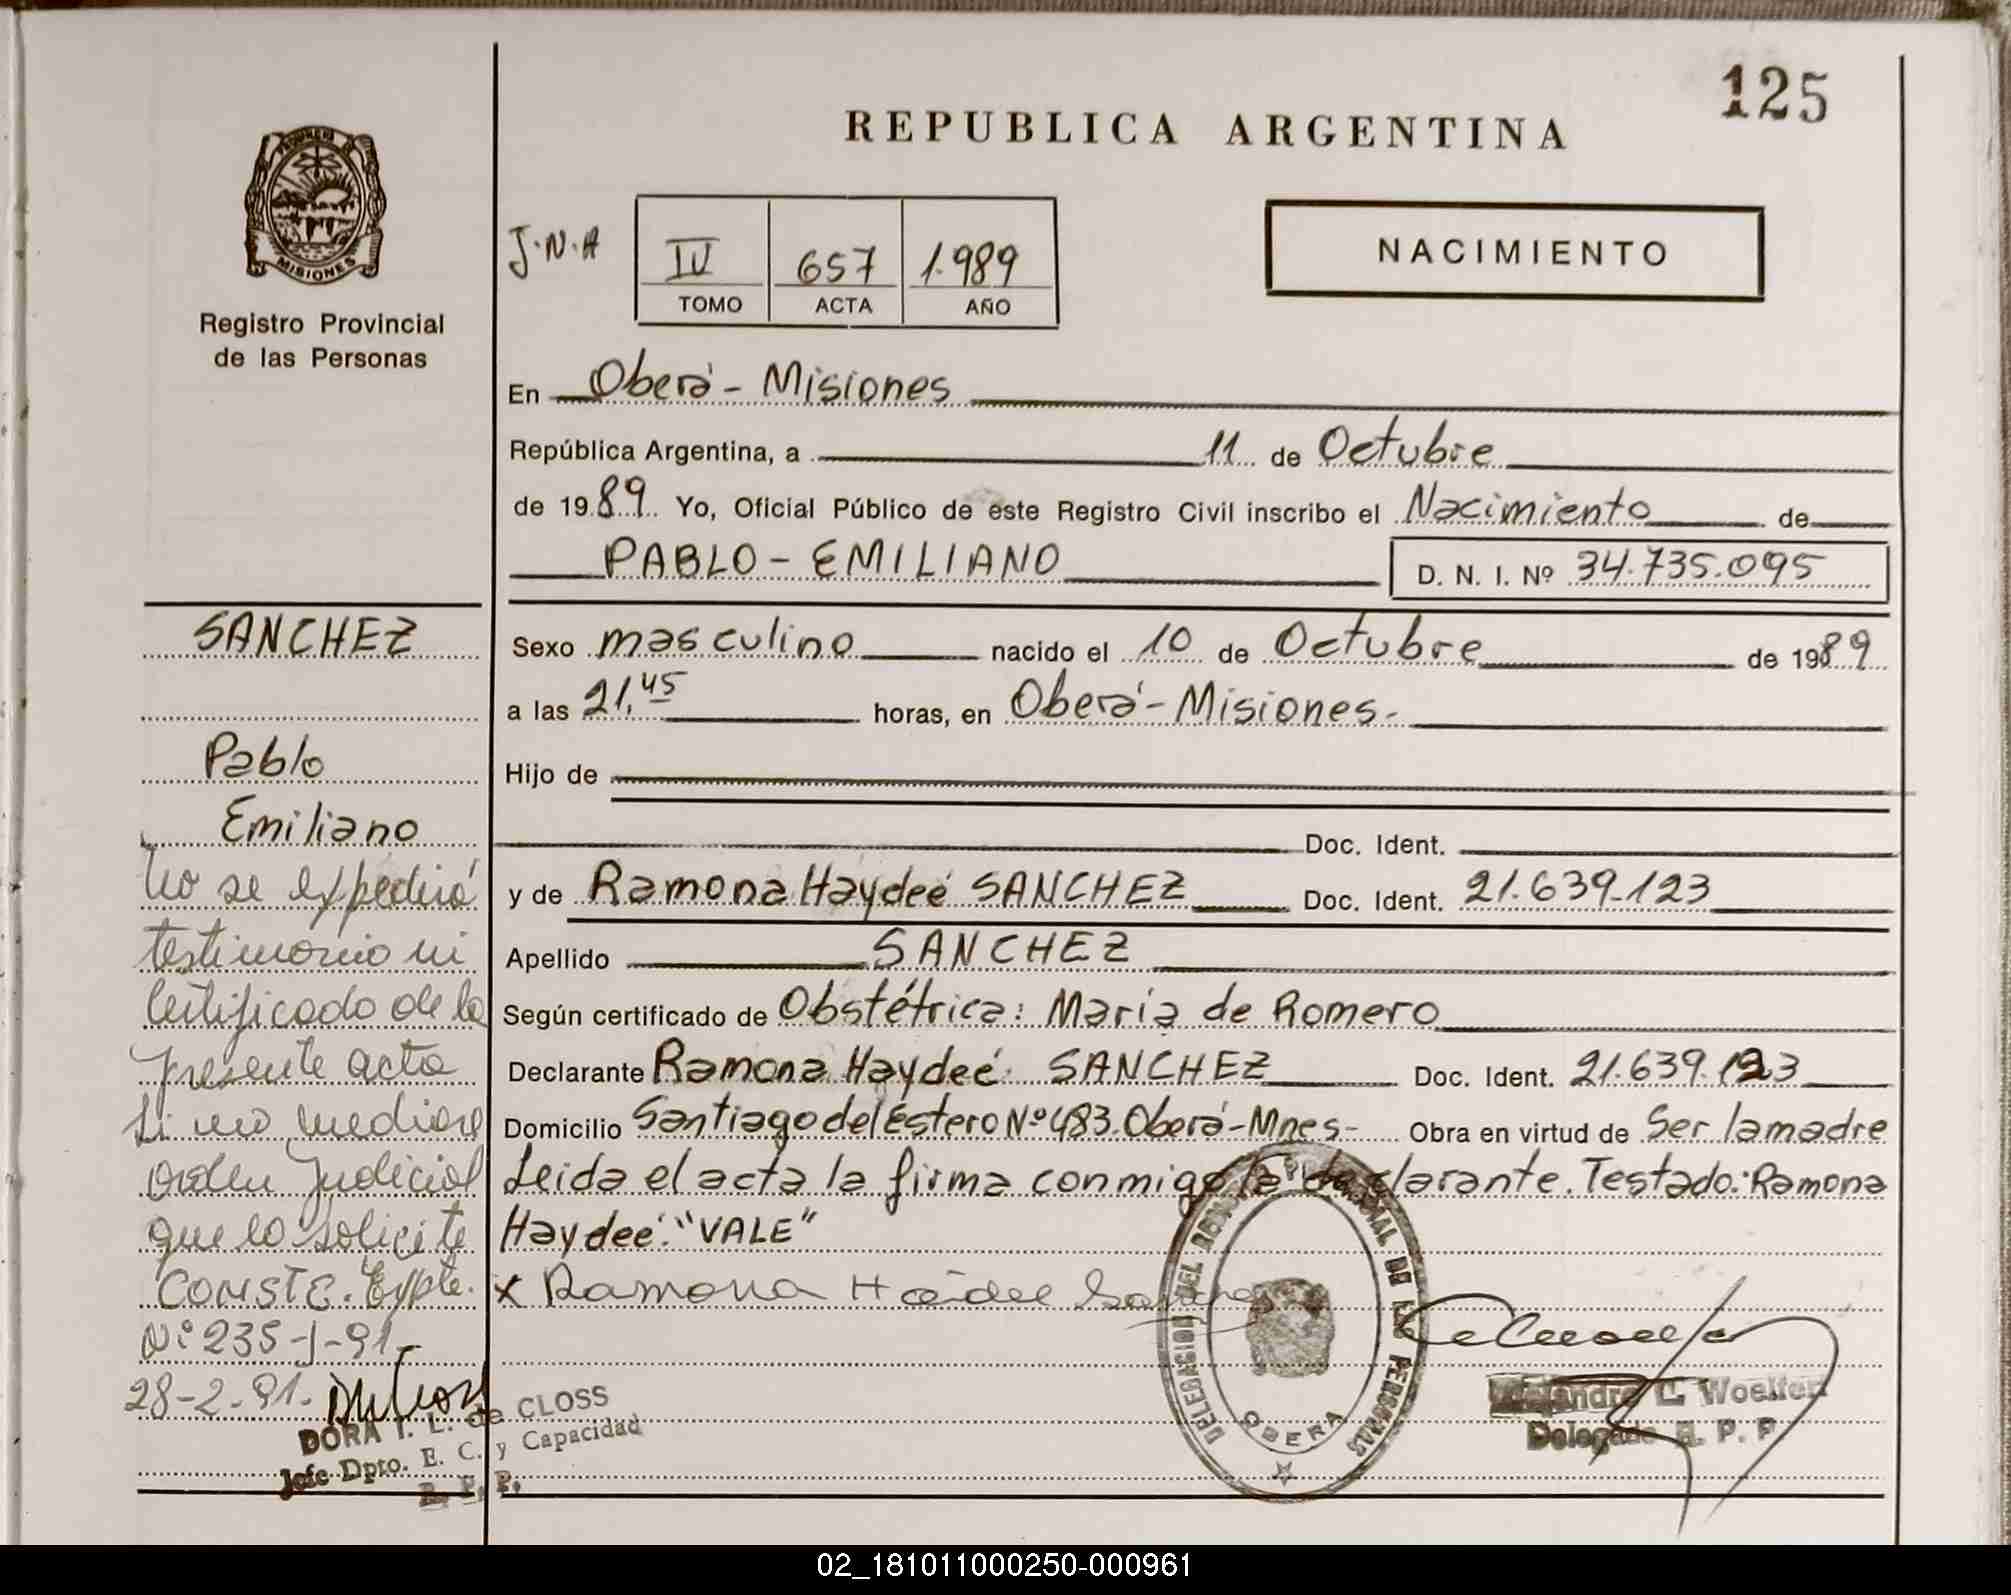 125
REPUBLICA ARGENTINA
PROVINCIA DE
MISIONES
Registro Provincial
de las Personas
J.N.A
IV 657 1.989
TOMO ACTA AÑO
NACIMIENTO
En Oberá - Misiones
República Argentina, a 11 de Octubre
de 1989 Yo, Oficial Público de este Registro Civil inscribo el Nacimiento de
PABLO - EMILIANO D. N. I. Nº 34.735.095
Sexo masculino nacido el 10 de Octubre de 1989
a las 21,45 horas, en Oberá - Misiones -
Hijo de
Doc. Ident.
y de Ramona Haydeé SANCHEZ Doc. Ident. 21.639.123
Apellido SANCHEZ
Según certificado de Obstétrica: Maria de Romero
Declarante Ramona Haydeé SANCHEZ Doc. Ident. 21.639.123
Domicilio Santiago del Estero Nº 483. Oberá - Mnes - Obra en virtud de Ser la madre
Leida el acta la firma conmigo la declarante. Testado: Ramona
Haydeé: "VALE"
x Ramona Haidee Sanchez
DELEGACION DEL REGISTRO PROVINCIAL DE LAS PERSONAS
OBERA
Alejandro L. Woelfert
Delegado R. P. P
SANCHEZ
Pablo
Emiliano
No se expedirá
testimonio ni
Certificado de la
presente acta
Si no mediare
Orden Judicial
que lo solicite
CONSTE. Expte.
Nº 235-J-91-
28-2-91-
DORA I. L. de CLOSS
Jefe Dpto. E. C. y Capacidad
R. P. P.
02_181011000250-000961